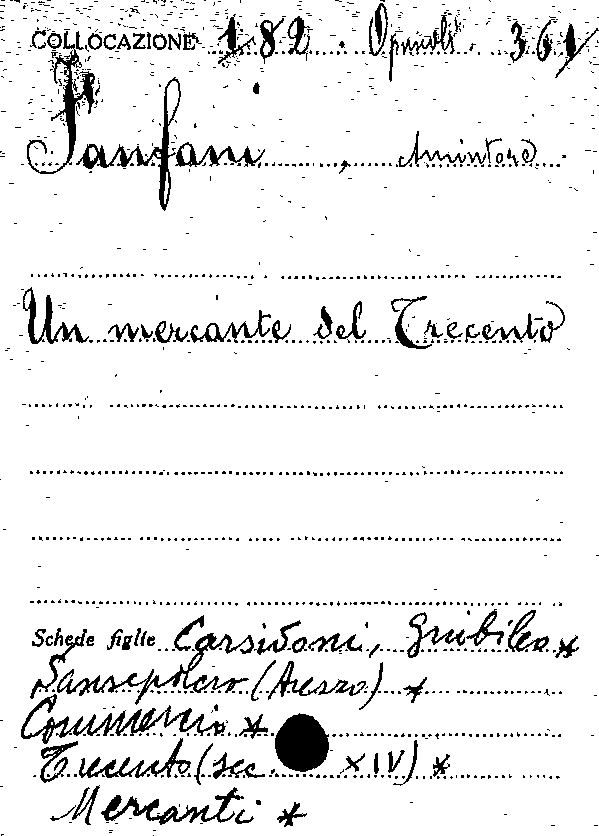 COLLOCAZIONE 182. Opuscoli. 361
Fanfani, Amintore.
Un mercante del Trecento
Schede figlie Carsidoni, Giubileo *
Sansepolcro (Arezzo) *
Commercio *
Trecento (sec. XIV) *
Mercanti *